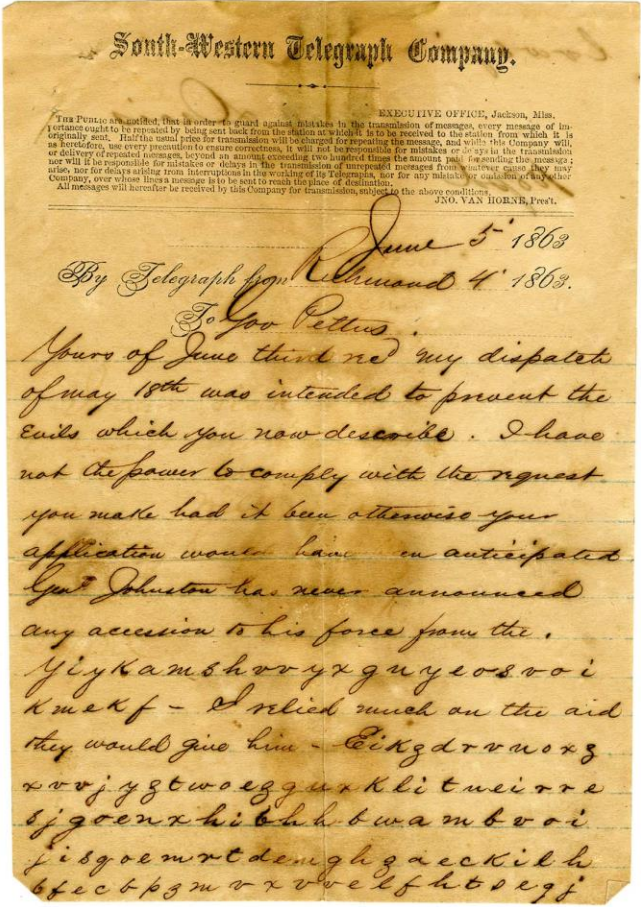 South-Western Telegraph Company.
EXECUTIVE OFFICE, Jackson, Miss.
THE PUBLIC are notified, that in order to guard against mistakes in the transmission of messages, every message of im-
portance ought to be repeated by being sent back from the station at which it is to be received to the station from which it is
originally sent. Half the usual price for transmission will be charged for repeating the message, and while this Company will,
as heretofore, use every precaution to ensure correctness, it will not be responsible for mistakes or delays in the transmission
or delivery of repeated messages, beyond an amount exceeding two hundred times the amount paid for sending the message;
nor will it be responsible for mistakes or delays in the transmission of unrepeated messages from whatever cause they may
arise, nor for delays arising from interruptions in the working of its Telegraphs, nor for any mistake or omission of any other
Company, over whose lines a message is to be sent to reach the place of destination.
All messages will hereafter be received by this Company for transmission, subject to the above conditions.
JNO. VAN HORNE, Pres't.
June 5 1863
By Telegraph from Richmond 4 1863.
To Gov Pettus.
Yours of June third recd my dispatch
of may 18th was intended to prevent the
evils which you now describe. I have
not the power to comply with the request
you make had it been otherwise your
application would have en anticipated
Genl Johnston has never announced
any accession to his force from the.
Yiykamshvvyxgnyeosvoi
Kmekf - I relied much on the aid
they would give him - Eikzdrvnoxz
xvvjyztwoezgnxKlitneirre
sjgoenxhibhhbwambvoi
jisgoemrtdemghzaeckilh
bfecbpzmvxvvelfhtsegj